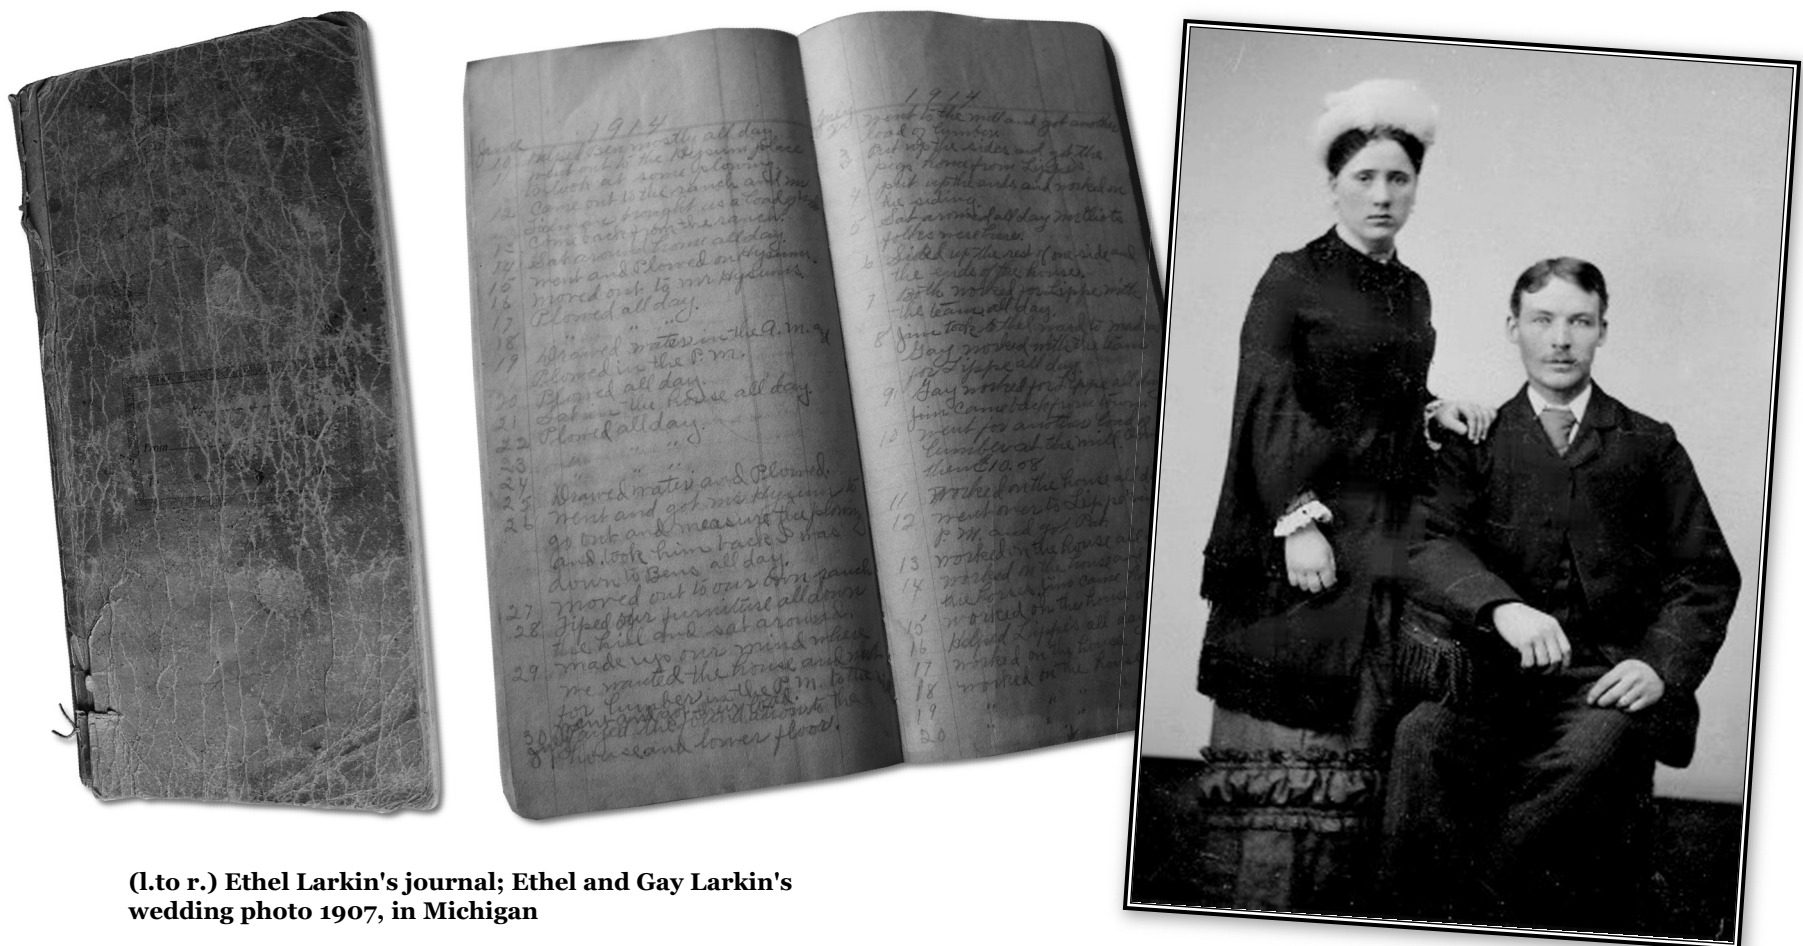 From
1914
June
10 Helped Ben mostly all day.
11 went out to the Hysum place
to look at some plowing.
12 Came out to the ranch and mr
brought us a load
13 Come back from the ranch.
14 Sat around home all day.
15 went and Plowed on Hysums.
16 moved out to mr Hysums.
17 Plowed all day.
18 " " "
19 Drawed water in the A.M. and
Plowed in the P.M.
20 Plowed all day.
21 Sat in the house all day.
22 Plowed all day.
23 " "
24 " "
25 Drawed water and Plowed.
26 went and got mr Hysum to
go out and measure the plowing
and took him back. I was
down to Bens all day.
27 moved out to our own ranch
28 Tiped our furniture all down
the hill and sat around.
29 made up our mind where
we wanted the house and
for lumber in the P.M. to the
30
raised the to the
house and lower floor.
1914
July
2 went to the mill and got another
load of lumber.
3 Put up the sides and got the
pigs home from Lippe's.
4 put up the ends and worked on
the siding.
5 Sat around all day
folks were here.
6 Sided up the rest of one side and
the ends of the house.
7 Both worked for Lippe with
the team all day.
8 Jim took Ethel
Gay worked with the team
for Lippe all day.
9 Gay worked for Lippe all day
Jim came back from town
10 went for another load
lumber at the mill
them $10.08
11 Worked on the house all day
12 went over to Lippe
P.M. and
13 worked on the house all
14 worked on the house
the horses, Jim came
15 worked on the house
worked.
16 Helped Lippe's all day
17 worked on the house
18 worked on the house
19 " " "
20 "
(l.to r.) Ethel Larkin's journal; Ethel and Gay Larkin's
wedding photo 1907, in Michigan